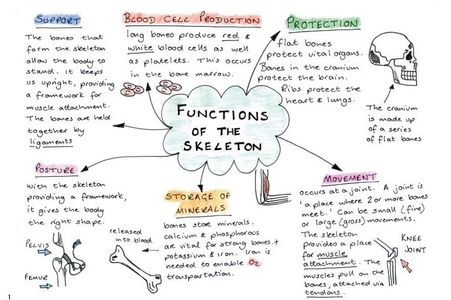 SUPPORT
The bones that
form the skeleton
allow the body to
stand. it keeps
us upright, providing
a framework for
muscle attachment.
The bones are held
together by
ligaments
BLOOD CELL PRODUCTION
long bones produce red &
white blood cells as well
as platelets. This occurs
in the bone marrow.
PROTECTION
flat bones
protect vital organs.
Bones in the cranium
protect the brain.
Ribs protect the
heart & lungs.
The cranium
is made up
of a series
of flat bones
FUNCTIONS
OF THE
SKELETON
POSTURE
with the skeleton
providing a framework,
it gives the body
the right shape.
PELVIS
FEMUR
STORAGE OF
MINERALS
released
into blood
bones store minerals.
calcium & phosphorous
are vital for strong bones +
potassium & iron. Iron is
needed to enable O2
transportation.
MOVEMENT
occurs at a joint. A joint is
'a place where 2 or more bones
meet.' Can be small (fine)
or large (gross) movements.
The skeleton
provides a place
for muscle
attachment. The
muscles pull on the
bones, attached via
tendons.
KNEE
JOINT
1